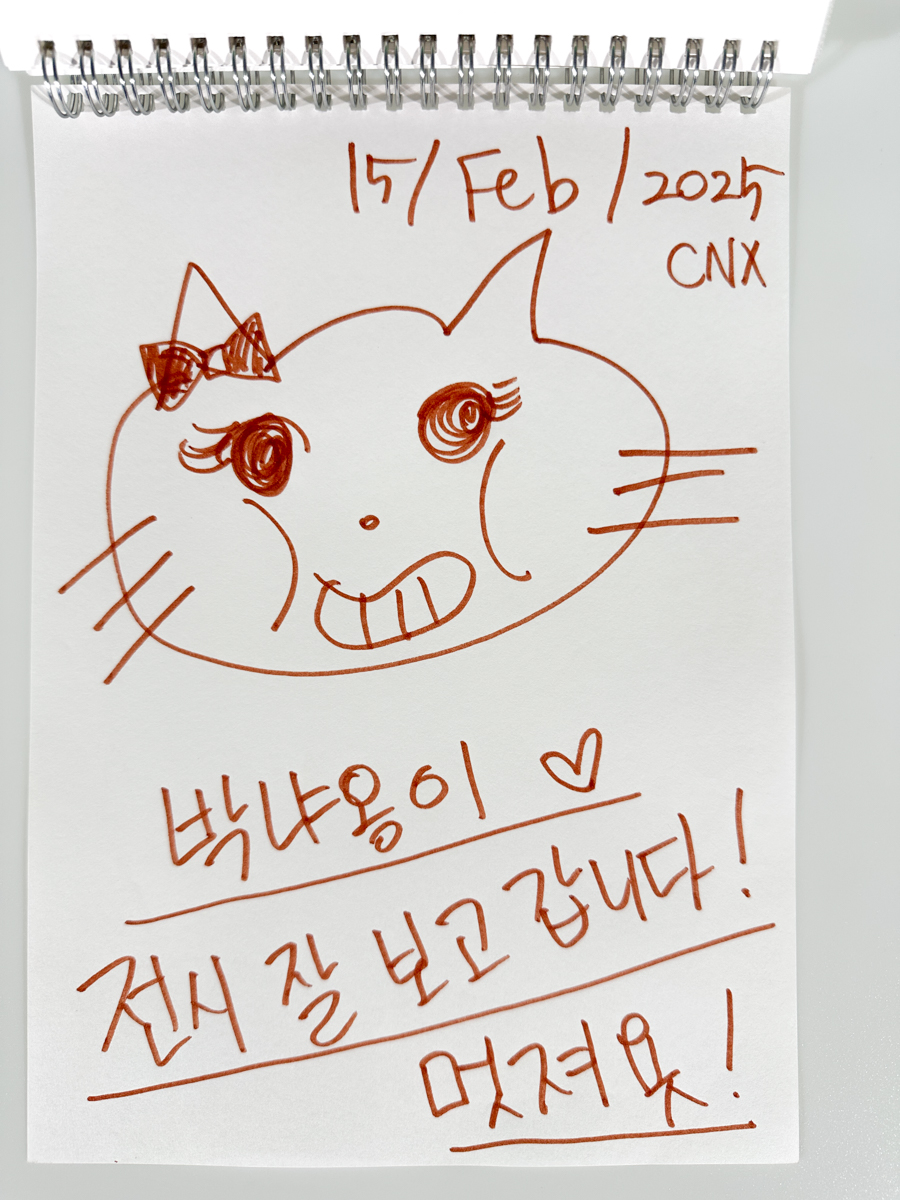 15/Feb/2025
CNX
박냐옹이 ♡
전시 잘 보고 갑니다!
멋져욧!